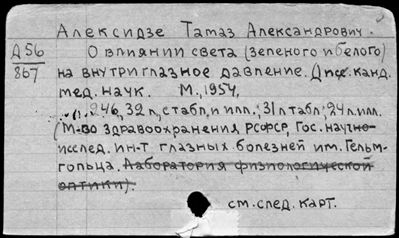 Алексидзе Тамаз Александрович.
Д56
867
О влиянии света (зеленого и белого)
на внутриглазное давление. Дисс. канд.
мед. наук. М., 1954,
246, 32 л, с табл, и илл.; 31 л табл; 24 л. илл.
(М-во здравоохранения РСФСР, Гос. научно-
исслед. ин-т глазных болезней им. Гельм-
гольца. Лаборатория физиологической
оптики).
см. след. карт.